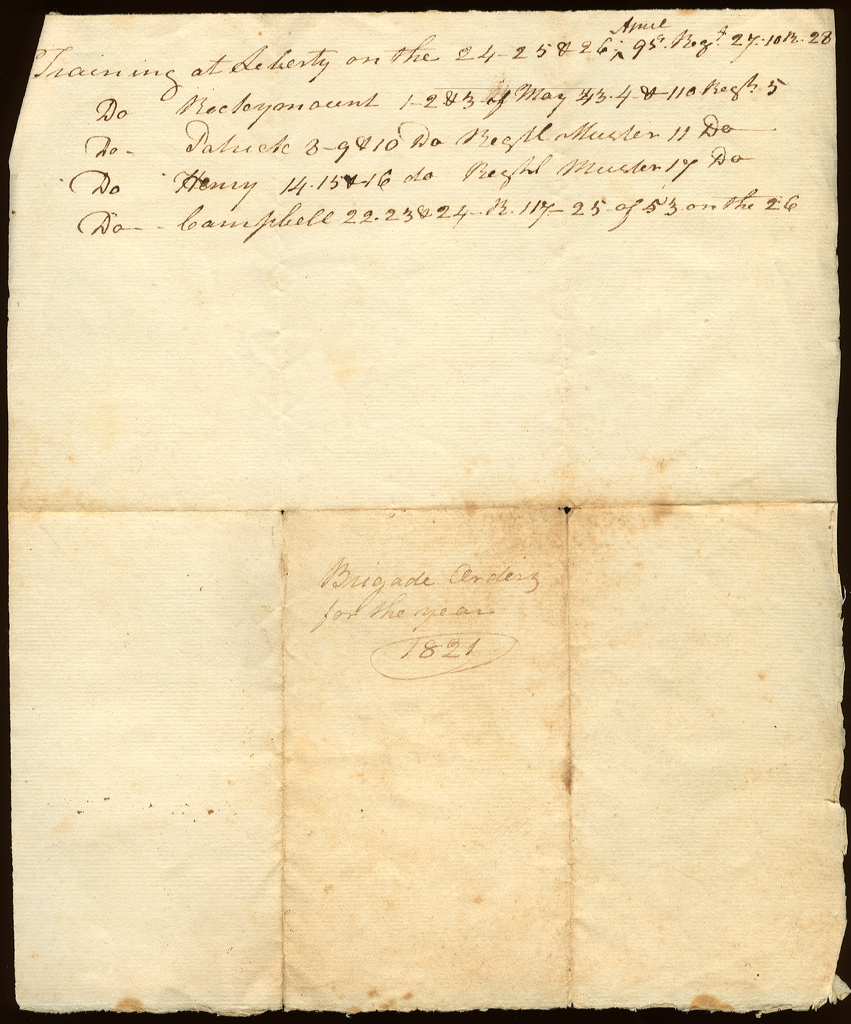 Training at Liberty on the 24-25 & 26 ^ April 95th Regt 27. 10 R. 28
Do Rockeymount 1-2 & 3 of May 43. 4 & 110 Regt. 5
Do - Patrick 8-9 & 10 Do Regtl Muster 11 Do
Do Henry 14. 15 & 16 do Regtl Muster 17 Do
Do - - Campbell 22. 23 & 24 - R. 117 - 25 - of 53 on the 26
Brigade Orders
for the year
1821